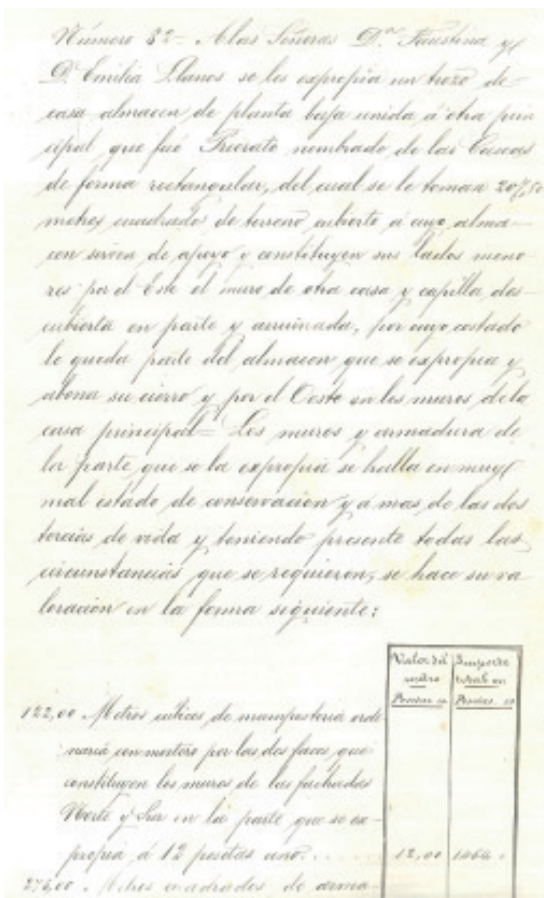 Número 32= A las Señoras D.ª Faustina y
D. Emilia Llanos se les expropia un trozo de
casa almacen de planta baja unida á otra prin
cipal que fué Priorato nombrado de las Caocas
de forma rectangular, del cual se le toman 207,50
metros cuadrados de terreno cubierto á cuyo alma-
cen sirven de apoyo y constituyen sus lados meno
res por el Este el muro de otra casa y capilla des-
cubierta en parte y arruinada, por cuyo costado
le queda parte del almacen que se expropia y
abona su cierro y por el Oeste en los muros de la
casa principal= Los muros y armadura de
la parte que se la expropia se halla en muy
mal estado de conservacion y á mas de las dos
tercias de vida y teniendo presente todas las
circunstancias que se requieren, se hace su va
loracion en la forma siguiente:
Valor del metro Pesetas cs
Importe total en Pesetas. cs
122,00 Metros cúbicos de mamposteria ordi
naria con mortero por las dos faces, que
constituyen los muros de las fachadas
Norte y Sur en la parte que se ex-
propia á 12 pesetas uno..... 12,00 1464 "
276,00 . Metros cuadrados de arma-